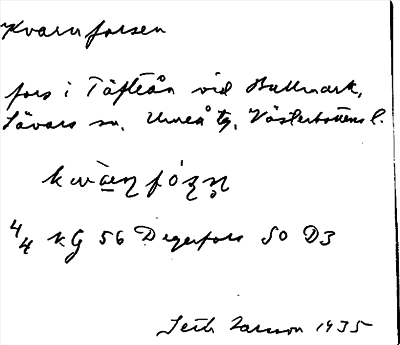 Kvarnforsen
fors i Täfteån vid Bullmark,
Sävars sn. Umeå tg, Västerbottens l.
4/4 KG 56 Degerfors SO D3
Seth Larsson 1935